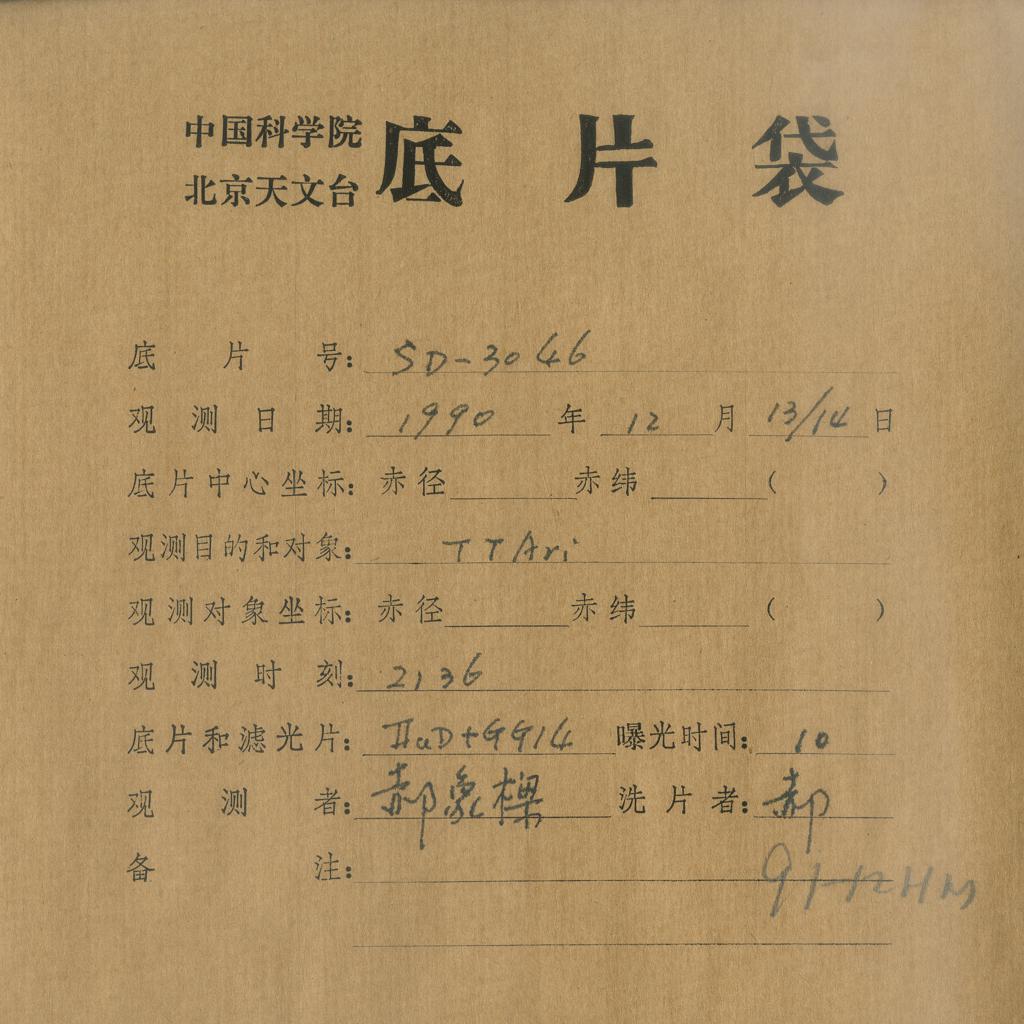 中国科学院
北京天文台
底片袋
底片号：SD-3046
观测日期：1990年12月13/14日
底片中心坐标：赤径 赤纬 （ ）
观测目的和对象：TT Ari
观测对象坐标：赤径 赤纬 （ ）
观测时刻：2136
底片和滤光片：IIaD+GG14 曝光时间：10
观测者：郝象樑 洗片者：郝
备注：